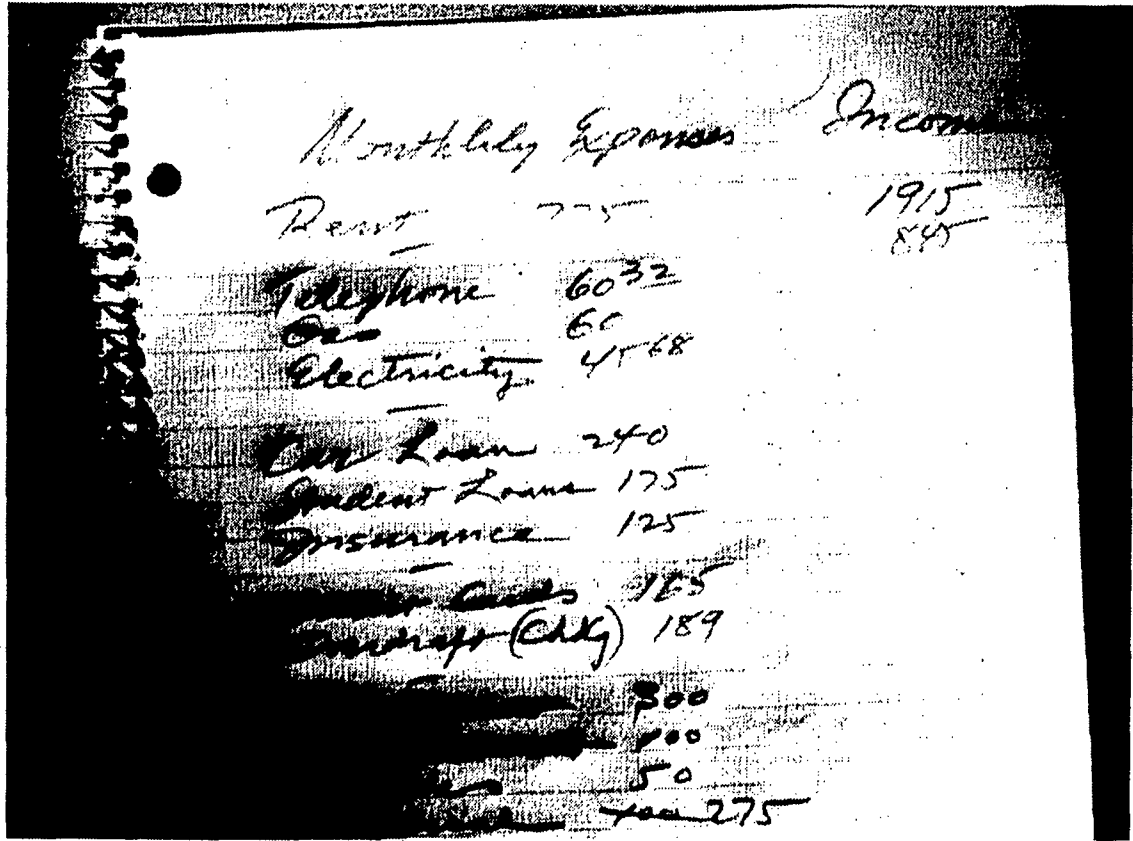 Monthlily Expenses Income
Rent 775 1915
845
Telephone 60 32
Gas 60
Electricity 45 68
Car Loan 240
Student Loans 175
Insurance 125
Cards 165
Overdraft (Chkg) 189
300
50
275